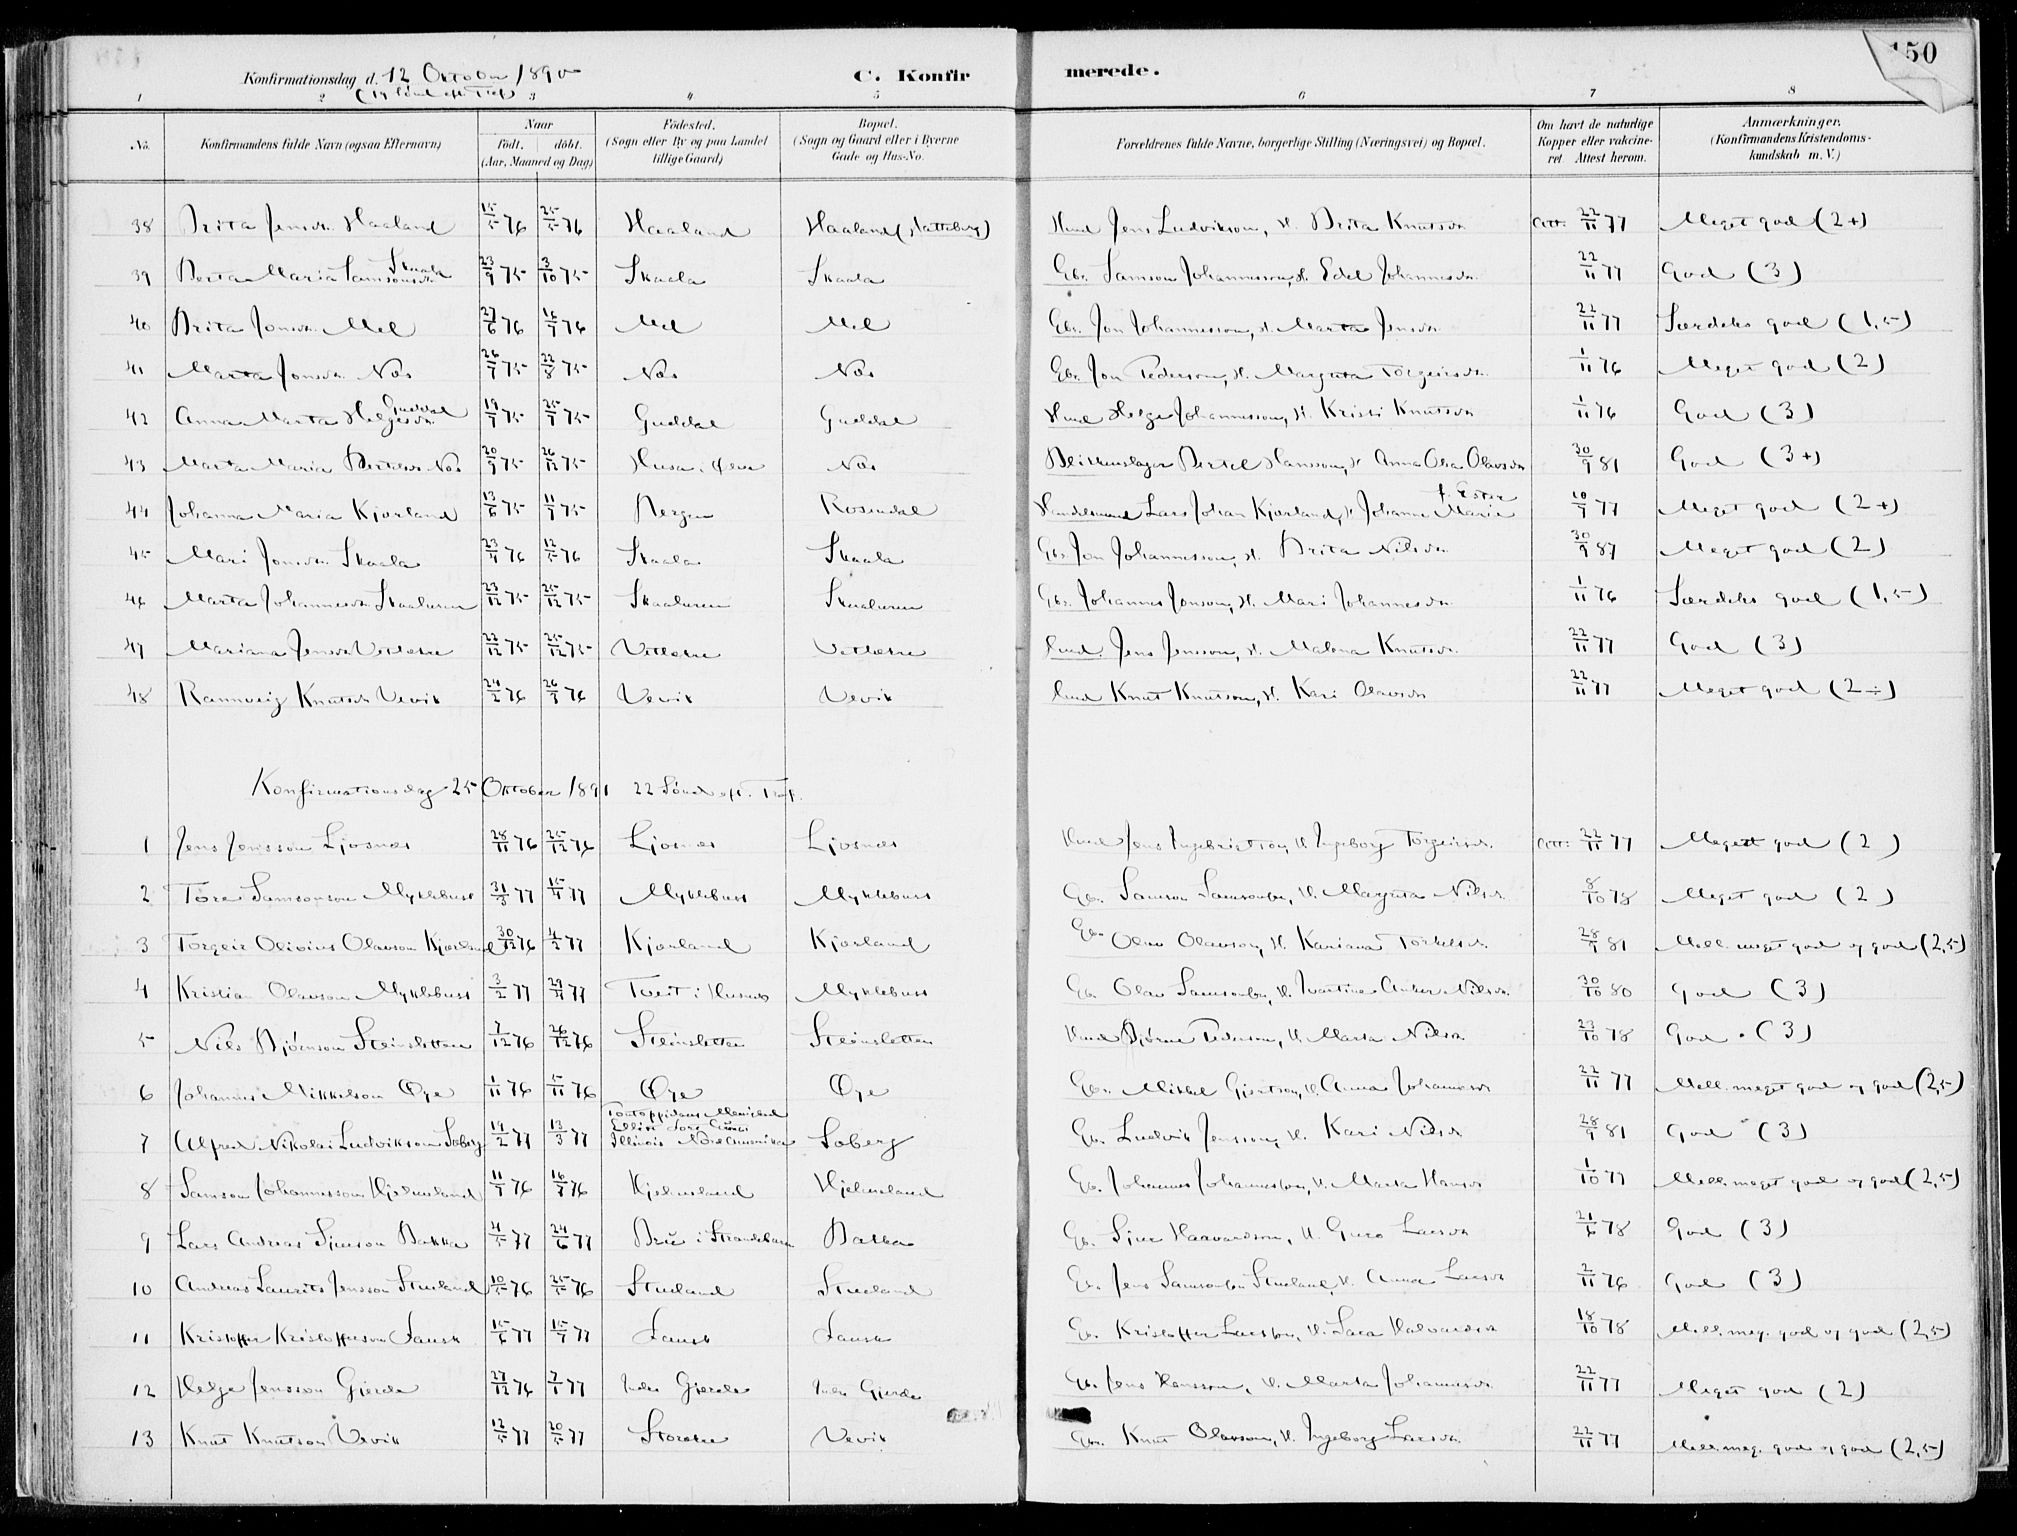 150
Konfirmationsdag d. 12 Oktober 1890 C. Konfirmerede.
1 2 3 4 5 6 7 8
No. Konfirmandens fulde Navn (ogsaa Efternavn) Naar født. døbt. (Aar, Maaned og Dag) Fødested. (Sogn eller By og paa Landet tillige Gaard) Bopæl. (Sogn og Gaard eller i Byerne Gade og Hus-No. Forældrenes fulde Navne, borgerlige Stilling (Næringsvei) og Bopæl. Om havt de naturlige Kopper eller vakcineret. Attest herom. Anmærkninger. (Konfirmandens Kristendomskundskab m. V.)
38 Brita Jensdr. Haaland 15/5 76 25/5 76 Haaland Haaland Hmd Jens Ludvikson, H. Brita Knutsdr Att: 22/11 77 Meget god (2+)
39 Berta Maria Samsonsdr Skaala 23/9 75 3/10 75 Skaala Skaala Gbr. Samson Johannesson, H. Edel Johannesdr. 22/11 77 God (3)
40 Brita Jonsdr. Mel 27/6 76 16/7 76 Mel Mel Gbr. Jon Johannesson, H. Marta Jensdr. 22/11 77 Særdeles god (1,5)
41 Marta Jonsdr. Nes 26/7 75 22/8 75 Nes Nes Gbr. Jon Pederson, H. Margreta Torgeirsdr. 1/11 76 Meget god (2)
42 Anna Marta Helgesdr. Guddal 19/7 75 25/7 75 Guddal Guddal Hmd Helge Johannesson, H. Kristi Knutsdr 1/11 76 God (3)
43 Marta Maria Bertelsdr Nes 20/9 75 26/12 75 Husa i Øen Nes Blikkenslager Bertel Hansson, H. Anna Olea Olavsdr 30/9 81 God (3+)
44 Johanna Maria Kjerland 13/6 75 11/7 75 Bergen Rosendal Handelsmand Lars Johan Kjerland, H. Johanne Marie 10/7 77 Meget god (2+)
45 Mari Jonsdr. Skaala 23/4 76 12/5 76 Skaala Skaala Gbr. Jon Johannesson, H. Brita Nilsdr. 30/9 87 Meget god (2)
46 Marta Johannesdr. Skaaluren 23/12 75 25/12 75 Skaaluren Skaaluren Gbr. Johannes Jonson, H. Mari Johannesdr. 1/11 76 Særdeles god (1,5)
47 Mariana Jensdr Vetletre 22/12 75 25/12 75 Vetletre Vetletre Hmd. Jens Jensson, H. Malena Knutsdr. 22/11 77 God (3)
48 Rannveig Knutsdr Uevik 24/2 76 26/3 76 Uevik Uevik Hmd Knut Knutson, H. Kari Olavsdr 22/11 77 Meget god (2÷)
Konfirmationsdag 25 Oktober 1891 22 Sønd. eft. Tref.
1 Jens Jensson Ljosnes 28/11 76 25/12 76 Ljosnes Ljosnes Hmd Jens Ingebrigtson, H. Ingeborg Torgeirsdr. Att: 22/11 77 Meget god (2)
2 Tore Samsonson Myklebust 31/3 77 15/4 77 Myklebust Myklebust Gbr. Samson Samsonsen, H. Margreta Nilsdr. 8/10 78 Meget god (2)
3 Torgeir Olivius Olavson Kjerland 30/12 76 4/2 77 Kjerland Kjerland Gbr. Olav Olavson, H. Kariana Torkelsdr 28/9 81 Mell. meget god og god (2,5)
4 Kristian Olavson Myklebust 3/2 77 77 Tveit i Husnes Myklebust Gbr. Olav Samsonsen, H. Nilsdr. 30/10 80 God (3)
5 Nils Bjørnson Steinsletten 7/12 76 26/12 76 Steinsletten Steinsletten Hmd Bjørne Pederson, H. Marta Nilsdr 23/10 78 God (3)
6 Johannes Mikkelson Øye 1/11 76 5/11 76 Øye Øye Gbr. Mikkel Gjertson, H. Anna Johannesdr 22/11 77 Mell. meget god og god (2,5)
7 Alfred Nikolai Ludvikson Soberg 19/2 77 13/3 77 Illinois Nord Amerika Soberg Gbr. Ludvik Jensson, H. Kari Nilsdr 28/9 81 God (3)
8 Samson Johannesson Hjelmeland 11/7 76 16/7 76 Hjelmeland Hjelmeland Gbr. Johannes Johannessen, H. Marta Hansdr 1/10 77 Mell. meget god og god (2,5)
9 Lars Andreas Sjurson Bakka 4/5 77 24/6 77 Bru i Strandebarm Bakka Gbr. Sjur Haavardson, H. Guro Larsdr 21/6 78 God (3)
10 Andreas Laurits Jensson Stueland 10/5 76 25/5 76 Stueland Stueland Gbr. Jens Samsonsen Stueland, H. Anna Larsdr 2/11 76 God (3)
11 Kristoffer Kristofferson Sausk 15/6 77 15/7 77 Sausk Sausk Gbr. Kristoffer Larsen, H. Sara Halvardsdr 18/10 78 Mell. meg. god og god (2,5)
12 Helge Jensson Gjerde 27/12 76 7/1 77 Indre Gjerde Indre Gjerde Gbr. Jens Hansson, H. Marta Johannesdr. 22/11 77 Meget god (2)
13 Knut Knutson Uevik 12/5 77 20/5 77 Storetre Uevik Gbr. Knut Olavson, H. Ingeborg Larsdr. 22/11 77 Mell. meg. god og god (2,5)